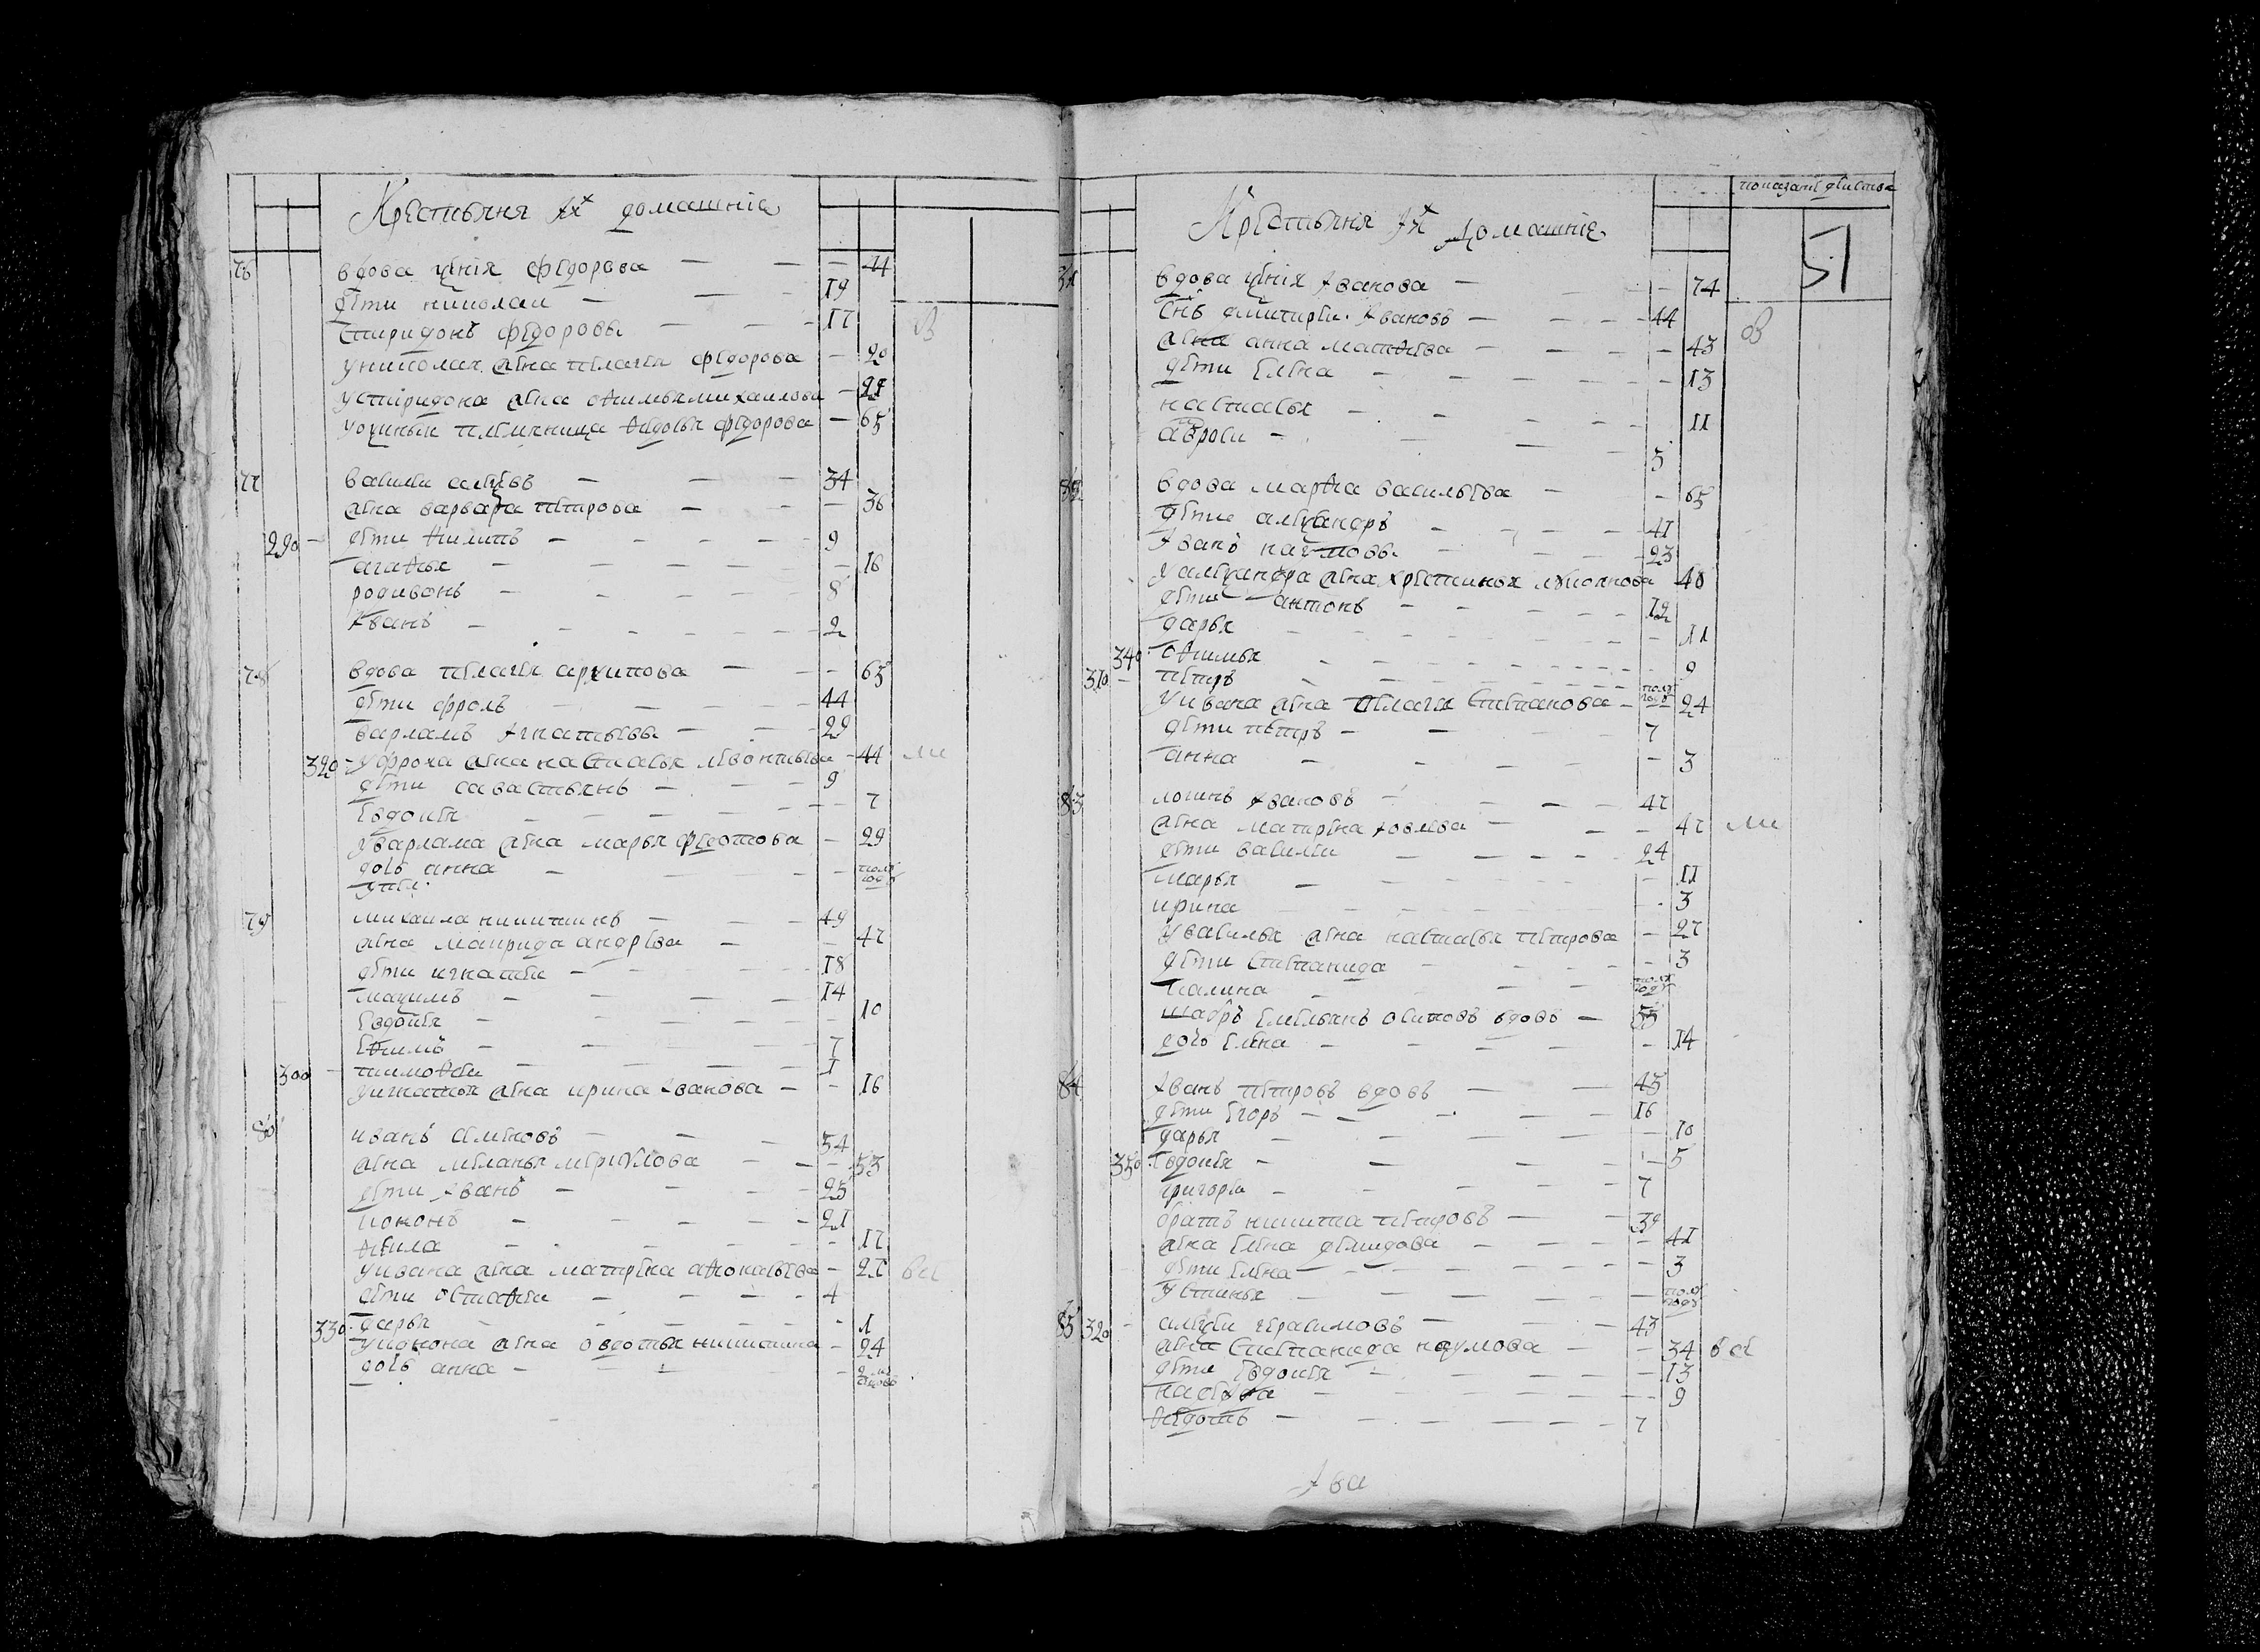 Крестьяня їхъ домашние
76 вдова ѯения федорова — — — 44
дети николаи — — — 19
спиридонъ федоровы — — — 17
у николая жена пелагея федорова — 20
у спиридона жена офимья михаилова — 27
федорова — 65
77 василеи алеѯевъ — — 34
жена варвара петрова — — — 36
290 — дети филипъ — — — 9
агафья — — — 16
родивонъ — — — 8
їванъ — — — 2
78 вдова пелагея архипова — — 65
дети фролъ — — 44
варламъ їгнатьевы — — 29
320 — у фрола жена настасья леонтьева — 44
дети савастьянъ — — 9
евдокея — — — 7
у варлама жена марья федотова — 29
дочь анна — полъ году
79 михаила никитинъ — — 49
жена маврида андреева — — 47
дети игнатеи — — — 18
маѯимъ — — — 14
евдокея — — — 10
ефимъ — — — 7
300 — тимофеи — — — 1
у игнатья жена ирина їванова — — 16
80 иванъ семеновъ — — 54
жена меланья меркулова — — 53
дети їванъ — — — 25
кононъ — — — 21
фекла — — — 17
у ивана жена матрена афонасьева — 27
дети остафеи — — — 4
330 — дарья — — — 1
у конона жена овдотья никитина — 24
дочь анна — —
показание действа
51
Крестьяня їхъ Домашние
81 вдова ѯения їванова — — 74
снъ дмитреи ївановъ — — — 44
жена анна матфеева — — — 43
дети елена — — — 13
настасья — — — 11
— — 5
82 вдова марфа васильева — — 65
дети алеѯандръ — — — 41
їванъ наумовы — — — 23
у алеѯандра жена хрестинья лукоянова 40
дети антонъ — — — 12
дарья — — — 11
340 — офимья — — — 9
310 — петръ — — — полъ году
у ивана жена пелагея степанова — 24
дети петръ — — 7
анна — — — 3
83 логинъ ївановъ — — — 47
жена матрена їовлева — — 47
дети василеи — — — 24
марья — — — 11
ирина — — — 3
у василья жена настасья петрова — 27
дети степанида — — — 3
галина — — полъ году
емельянъ осиповъ вдовъ — 55
дочь елена — — — 14
84 їванъ петровъ вдовъ — — 45
дети егоръ — — — 16
дарья — — — 10
350 — евдокея — — — 5
григореи — — — 7
братъ никита петровъ — — 39
жена елена демидова — — — 41
дети елена — — — 3
устинья — — — полъ году
85 320 — алеѯеи герасимовъ — — 43
жена степанида наумова — — 34 все
дети евдокея — — — 13
— — — 9
федотъ — — — 7
їва